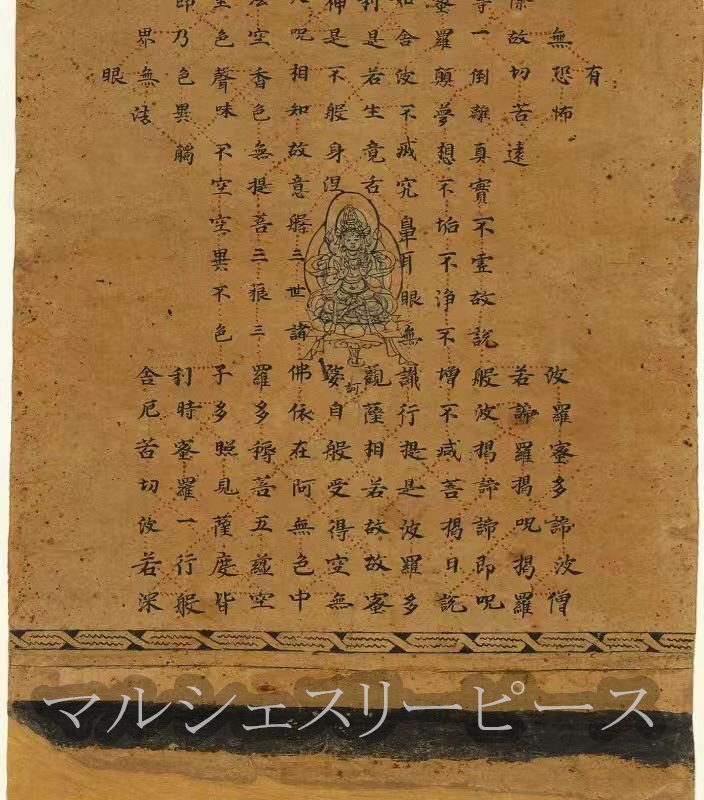 有
無恐怖
波羅蜜多諦波僧
故切苦遠
若諦羅揭呪揭羅
等一倒離真實不靈故説般波揭諦諦即呪
蜜羅顛夢想不垢不淨不增不減菩揭日説
如舍波不滅究鼻耳眼無識行提是波羅多
利是若生竟舌
觀薩相若故故蜜
神是不般身涅
訶
婆自般受得空無
呪相知故意三世諸佛依在阿無色中
空香色無提菩三藐三羅多菩五蘊空
色聲味不空空異不色子多照見薩度皆
即乃色異觸
利時蜜羅一行般
界無法
舍尼苦切波若深
眼
マルシェスリーピース